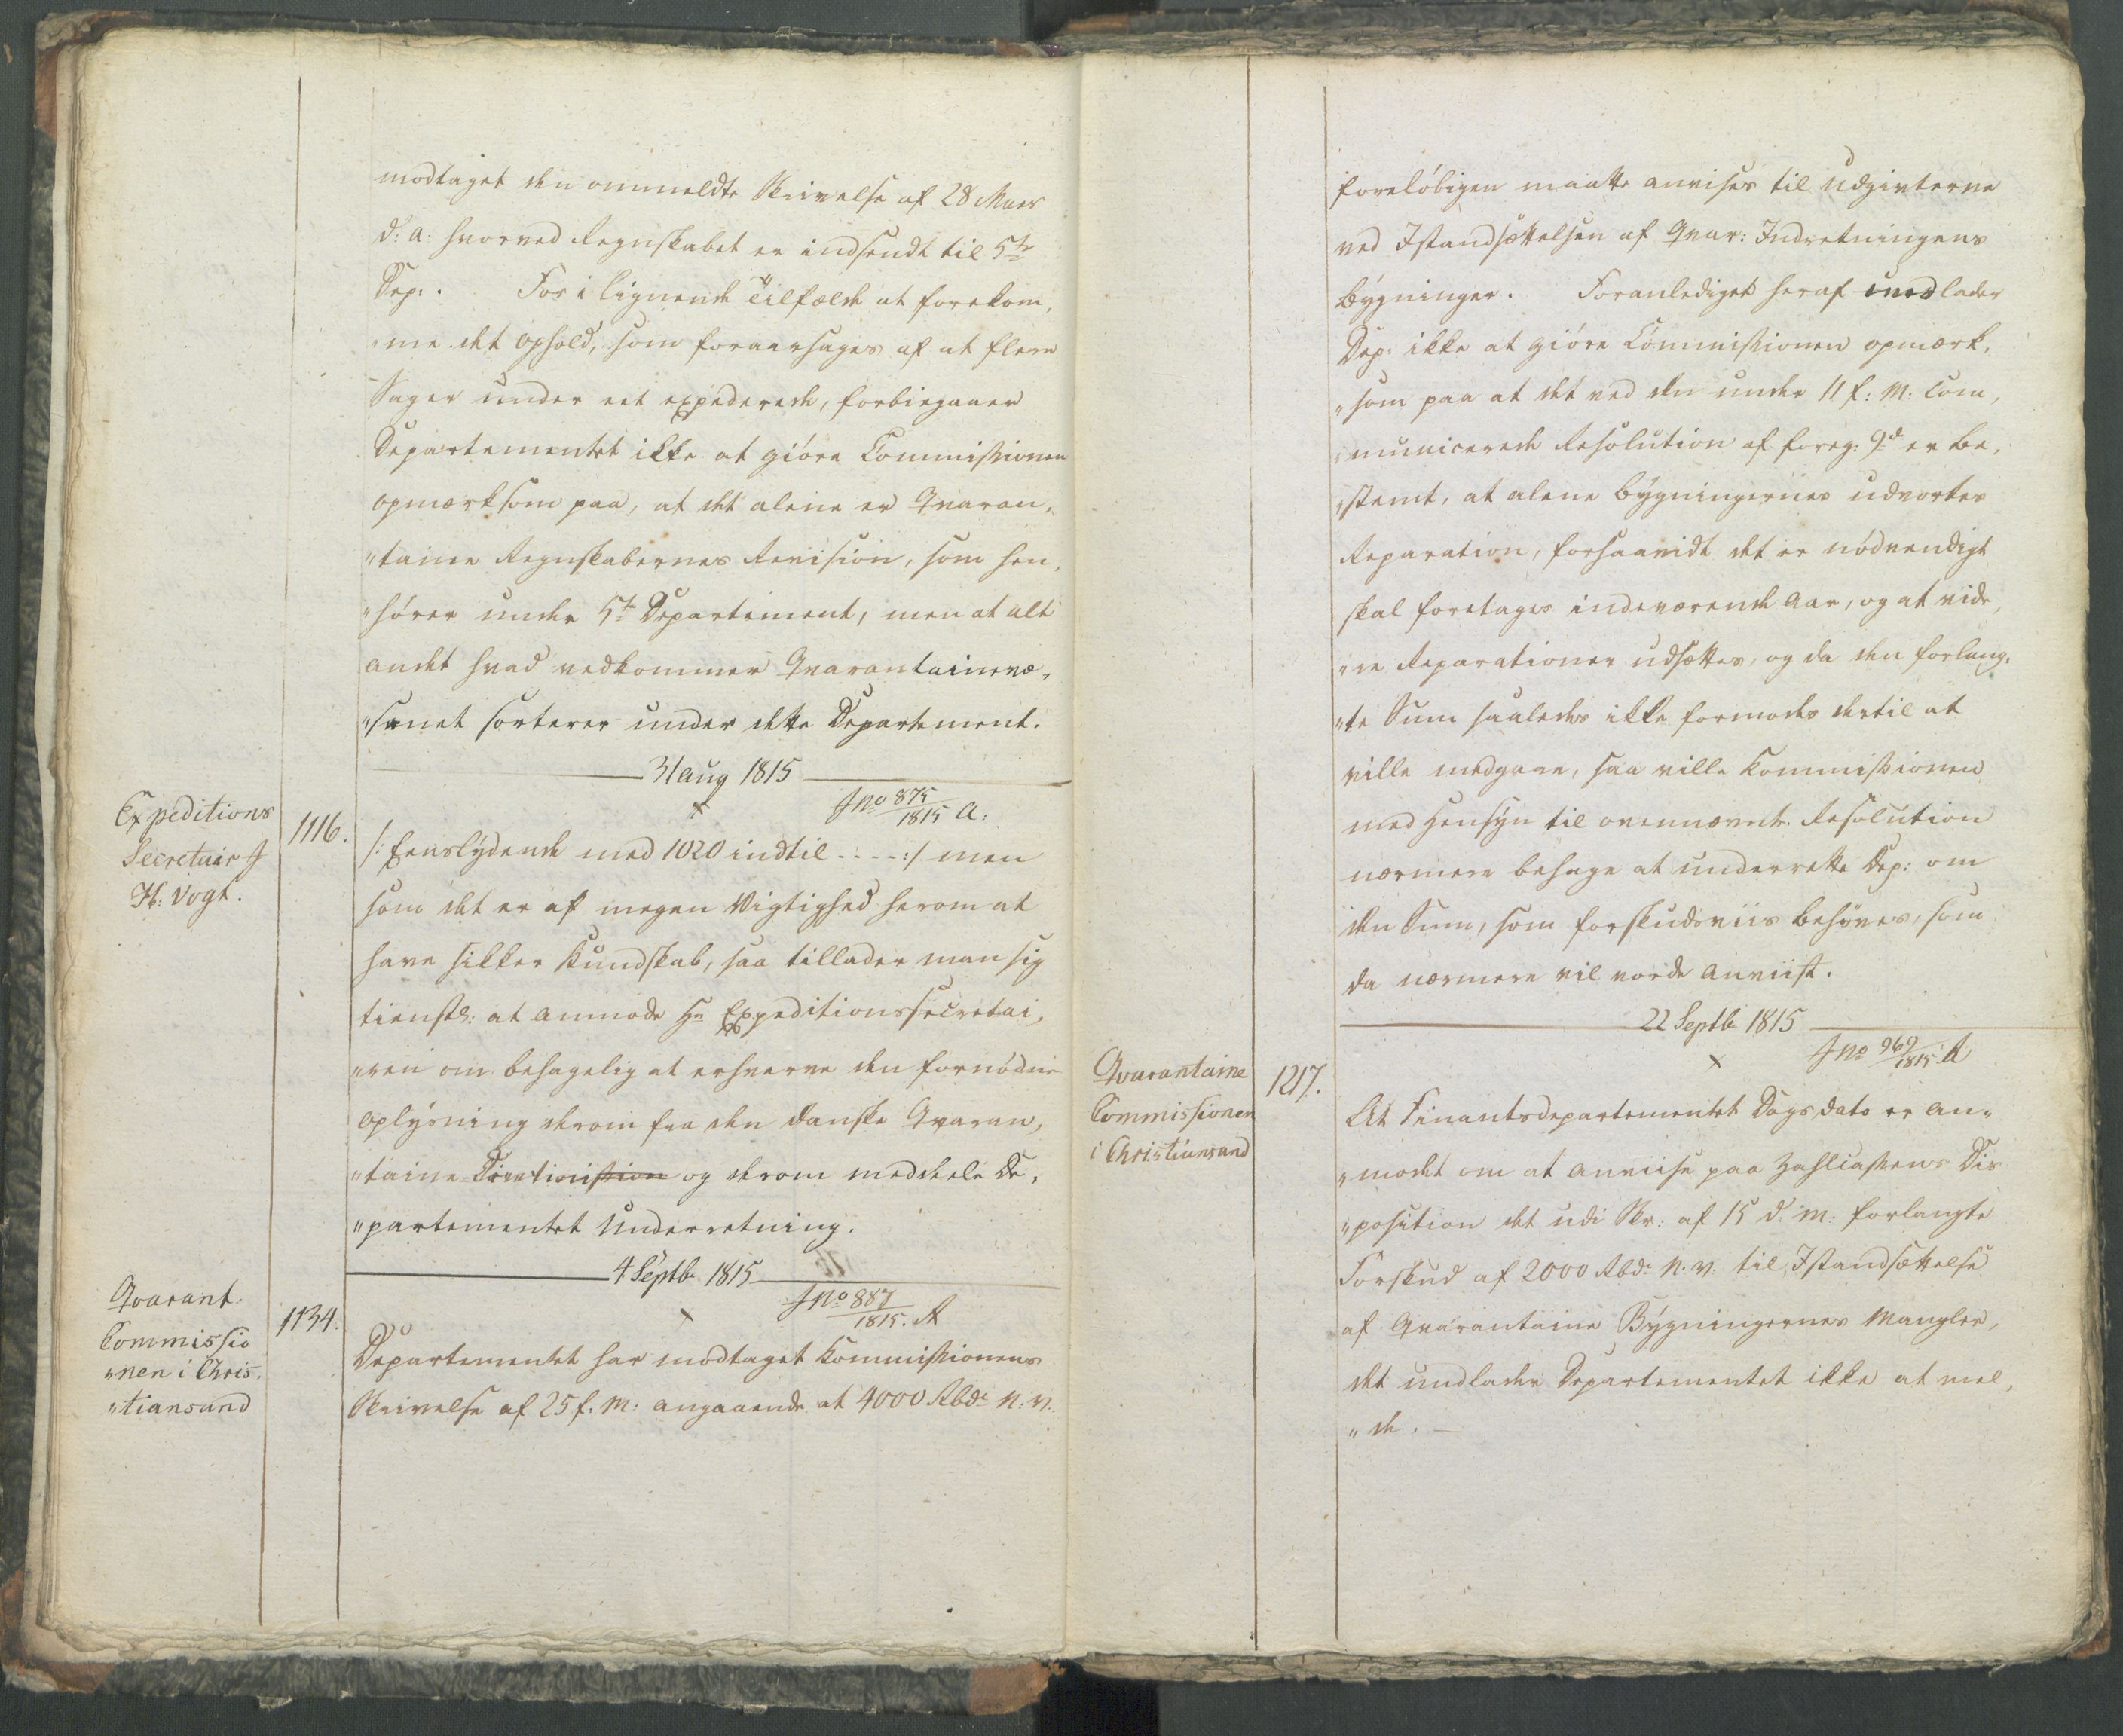 modtaget den ommeldte Skrivelse af 28 Mars
d: a: hvorved Regnskabet er indsendt til 5te
Dep: . For i lignende Tilfælde at forekom,
"me det Ophold, som foraarsages af at flere
Sager under eet expederede, forbiegaaer
Departementet ikke at giöre Commissionen
opmærksom paa, at det alene er Qvaran,
"taine Regnskabernes Revision, som hen,
"hörer under 5te Departement, men at alt
andet hvad vedkommer Qvarantainevæ,
"senet sorterer under dette Departement.
31 Aug 1815
Expeditions
Secretair J
H: Vogt.
1116.
Jno 875/1815 A:
/: Eenslydende med 1020 indtil ----:/ men
som det er af megen Vigtighed herom at
have sikker Kundskab, saa tillader man sig
tienstl: at anmode Hr Expeditionssecretai,
"ren om behagelig at erhverve den fornödne
Oplysning derom fra den danske Qvaran,
"taine og derom meddele De,
"partementet Underretning.
4 Septb 1815
Qvarant.
Commissio
"nen i Chris,
"tiansand
1134.
Jno 887/1815. A
Departementet har modtaget Kommissionens
Skrivelse af 25 f: M: angaaende at 4000 Rbd N: V:
foreløbigen maatte anvises til Udgivterne
ved Istandsættelsen af Qvar: Indretningens
Bygninger. Foranlediget heraf undlader
Dep: ikke at giöre Commissionen opmærk,
"som paa at det ved den under 11 f: M: Com,
"municerede Resolution af foreg: 9d er be,
"stemt, at alene Bygningernes udvortes
Reparation, forsaavidt det er nödvendigt
skal foretages indeværende Aar, og at vide,
"re Reparationer udsættes, og da den forlang,
"te Sum saaledes ikke formodes dertil at
ville medgaae, saa ville Kommissionen
med Hensyn til ovennævnte Resolution
nærmere behage at underrette Dep: om
den Sum, som forskudsviis behöves, som
da nærmere vil vorde anviist.
22 Septb 1815
Qvarantaine
Commissionen
i Christiansand
1217.
Jno 969/1815 A
At Finantsdepartementet Dags Dato er an,
"modet om at anviise paa Zahlcassens Dis
"position det udi Skr: af 15 d: M: forlangte
Forskud af 2000 Rbd N. V. til Istandsættelse
af Qvarantaine Bygningernes Mangler,
det undlader Departementet ikke at mel,
"de. —